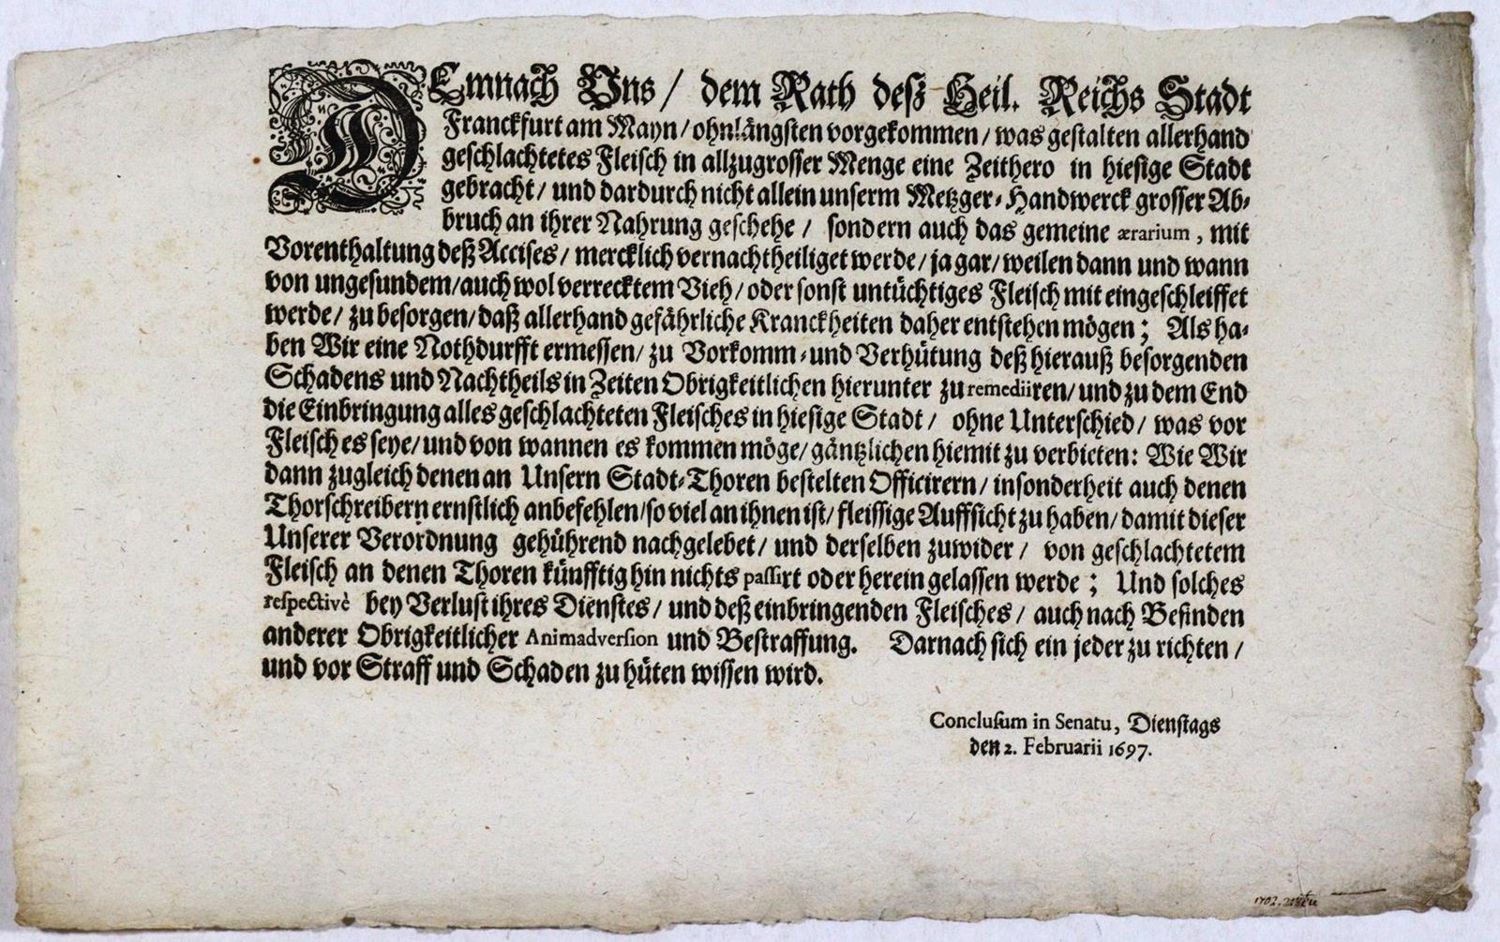 DEmnach Vns / dem Rath deß Heil. Reichs Stadt
Franckfurt am Mayn / ohnlängsten vorgekommen / was gestalten allerhand
geschlachtetes Fleisch in allzugrosser Menge eine Zeithero in hiesige Stadt
gebracht / und dardurch nicht allein unserm Metzger-Handwerck grosser Ab-
bruch an ihrer Nahrung geschehe / sondern auch das gemeine ærarium, mit
Vorenthaltung deß Accises / mercklich vernachtheiliget werde / ja gar / weilen dann und wann
von ungesundem / auch wol verrecktem Vieh / oder sonst untüchtiges Fleisch mit eingeschleiffet
werde / zu besorgen / daß allerhand gefährliche Kranckheiten daher entstehen mögen; Als ha-
ben Wir eine Nothdurfft ermessen / zu Vorkomm- und Verhütung deß hierauß besorgenden
Schadens und Nachtheils in Zeiten Obrigkeitlichen hierunter zu remediiren / und zu dem End
die Einbringung alles geschlachteten Fleisches in hiesige Stadt / ohne Unterschied / was vor
Fleisch es seye / und von wannen es kommen möge / gäntzlichen hiemit zu verbieten: Wie Wir
dann zugleich denen an Unsern Stadt-Thoren bestelten Officirern / insonderheit auch denen
Thorschreibern ernstlich anbefehlen / so viel an ihnen ist / fleissige Auffsicht zu haben / damit dieser
Unserer Verordnung gehührend nachgelebet / und derselben zuwider / von geschlachtetem
Fleisch an denen Thoren künfftig hin nichts passirt oder herein gelassen werde; Und solches
respectivè bey Verlust ihres Dienstes / und deß einbringenden Fleisches / auch nach Befinden
anderer Obrigkeitlicher Animadversion und Bestraffung. Darnach sich ein jeder zu richten /
und vor Straff und Schaden zu hüten wissen wird.
Conclusum in Senatu, Dienstags
den 2. Februarii 1697.
1702.